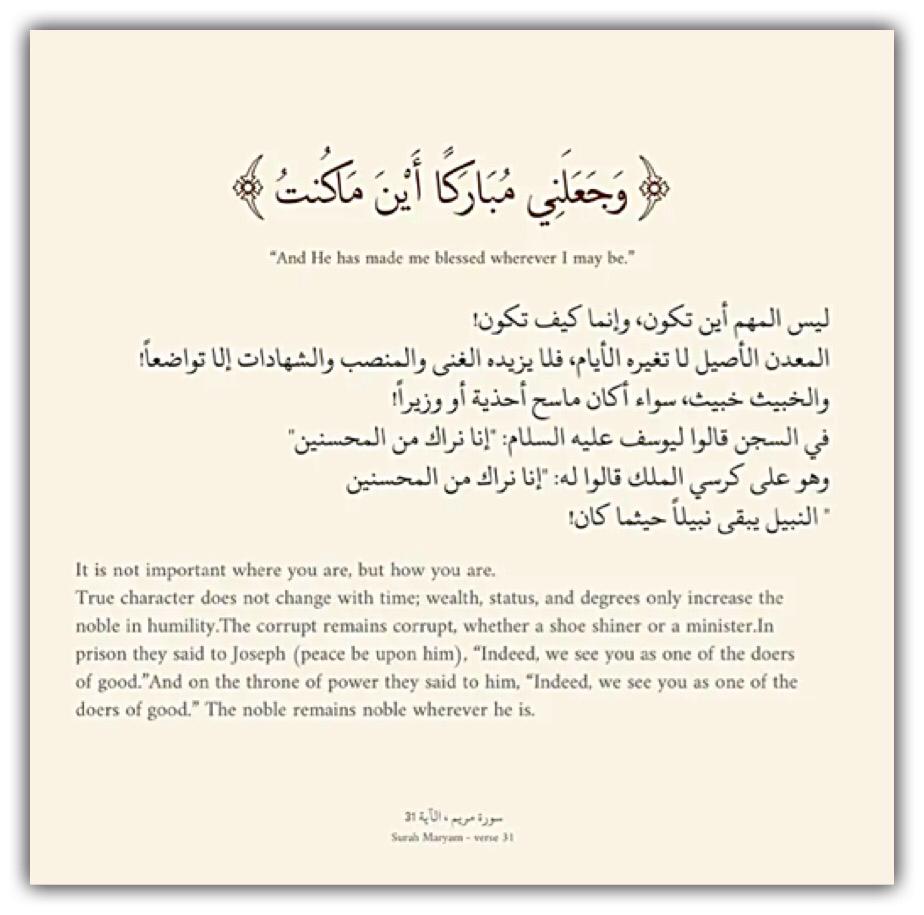 ﴿ وَجَعَلَنِي مُبَارَكًا أَيْنَ مَا كُنتُ ﴾
“And He has made me blessed wherever I may be.”
ليس المهم أين تكون، وإنما كيف تكون!
المعدن الأصيل لا تغيره الأيام، فلا يزيده الغنى والمنصب والشهادات إلا تواضعاً!
والخبيث خبيث، سواء أكان ماسح أحذية أو وزيراً!
في السجن قالوا ليوسف عليه السلام: "إنا نراك من المحسنين"
وهو على كرسي الملك قالوا له: "إنا نراك من المحسنين
" النبيل يبقى نبيلاً حيثما كان!
It is not important where you are, but how you are.
True character does not change with time; wealth, status, and degrees only increase the
noble in humility.The corrupt remains corrupt, whether a shoe shiner or a minister.In
prison they said to Joseph (peace be upon him), “Indeed, we see you as one of the doers
of good.”And on the throne of power they said to him, “Indeed, we see you as one of the
doers of good.” The noble remains noble wherever he is.
سورة مريم ، الآية 31
Surah Maryam - verse 31